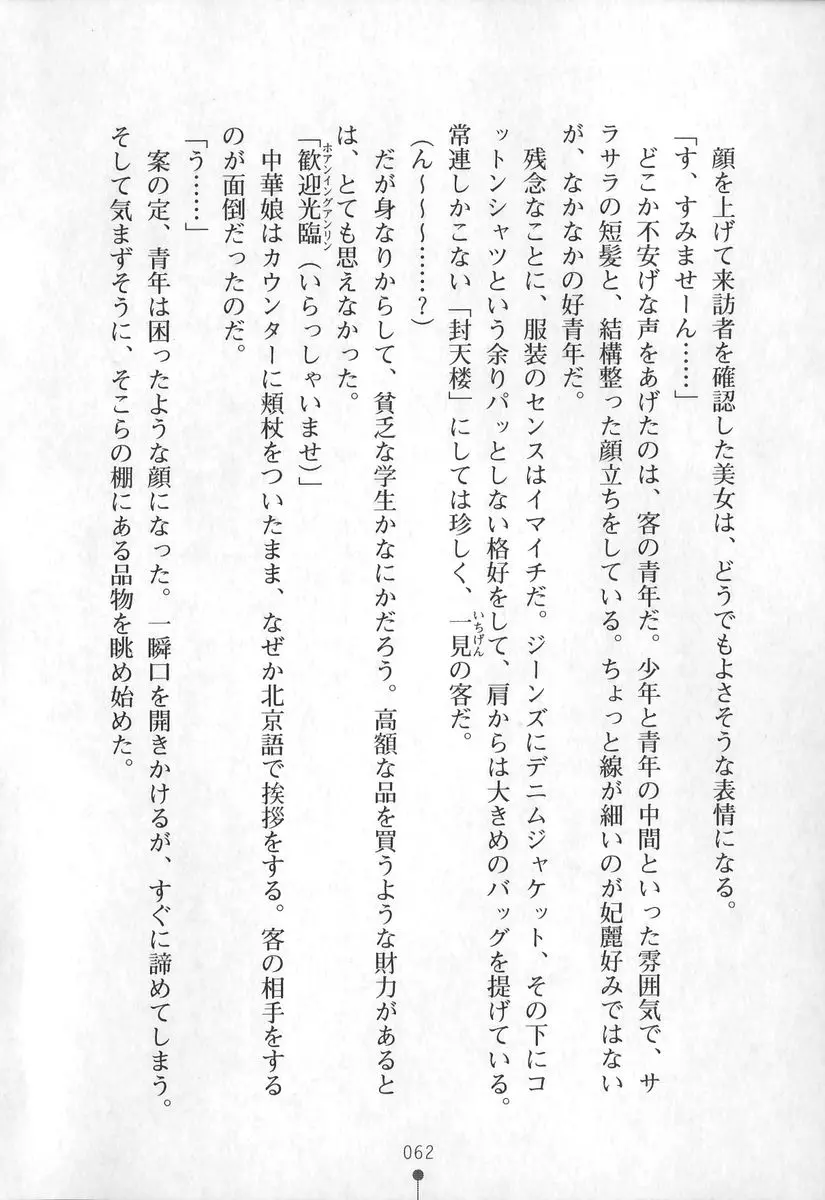 顔を上げて来訪者を確認した美女は、どうでもよさそうな表情になる。
「す、すみませーん……」
どこか不安げな声をあげたのは、客の青年だ。少年と青年の中間といった雰囲気で、サ
ラサラの短髪と、結構整った顔立ちをしている。ちょっと線が細いのが妃麗好みではない
が、なかなかの好青年だ。
残念なことに、服装のセンスはイマイチだ。ジーンズにデニムジャケット、その下にコ
ットンシャツという余りパッとしない格好をして、肩からは大きめのバッグを提げている。
常連しかこない「封天楼」にしては珍しく、一見いちげんの客だ。
(ん～～～……？)
だが身なりからして、貧乏な学生かなにかだろう。高額な品を買うような財力があると
は、とても思えなかった。
「歓迎光臨ホアンイングアンリン(いらっしゃいませ)」
中華娘はカウンターに頬杖をついたまま、なぜか北京語で挨拶をする。客の相手をする
のが面倒だったのだ。
「う……」
案の定、青年は困ったような顔になった。一瞬口を開きかけるが、すぐに諦めてしまう。
そして気まずそうに、そこらの棚にある品物を眺め始めた。
062